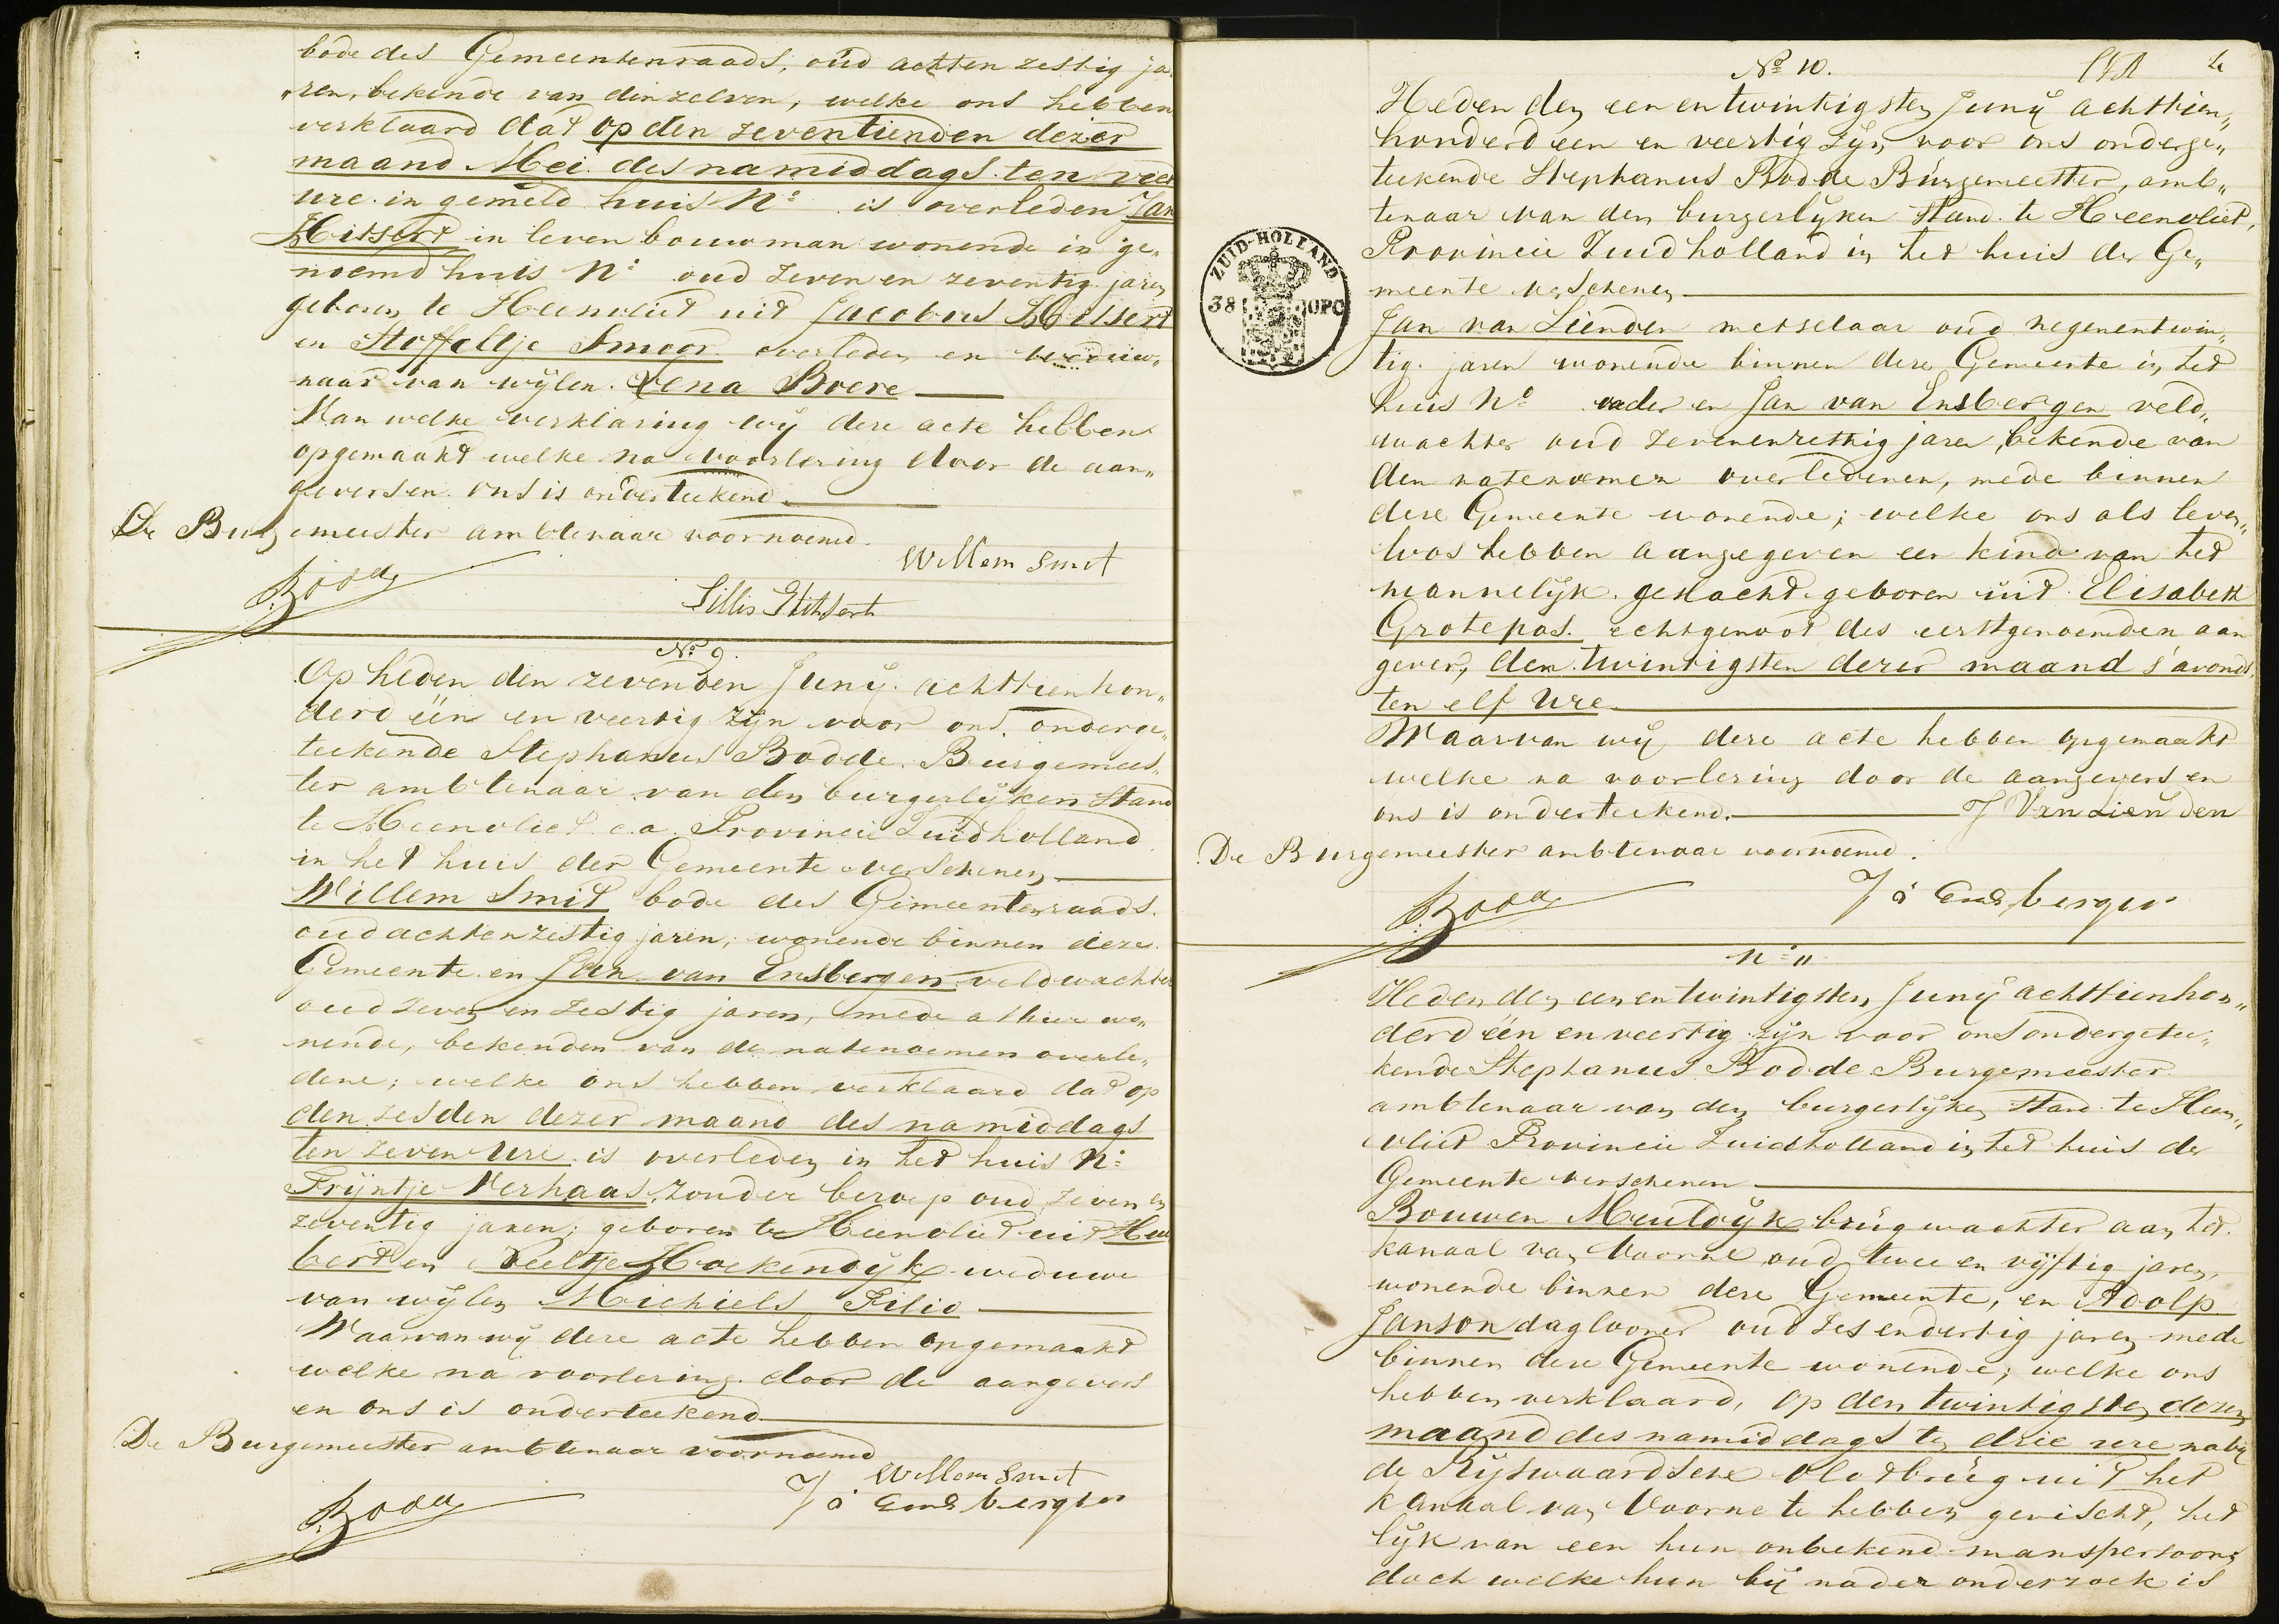 bode des Gemeentenraads, oud achten zestig ja
ren, bekende van dinzelven, welke ons hebben
verklaard dat op den zeventienden dezer
maand Mei des namiddags ten vier
ure in gemeld huis N: is overleden Jan
Hitsert in leven bouwman wonende in ge„
noemd huis N: oud zeven en zeventig jaren
geboren te Heenvliet uit Jacobus Hitsert
en Stoffeltje Smoor overleden en weduw„
naar van wylen Lena Boere
Van welke verklaring wij deze acte hebben
opgemaakt welke na voorlezing door de aan„
gevers en ons is onderteekend
De Burgemeester ambtenaar voornoemd.
Willem Smit
Bodde
Hitsert
No 9.
Op heden den zevenden Junij achttienhon„
derd één en veertig zijn voor ons onderge„
teekende Stephanus Bodde Burgemees„
ter ambtenaar van den burgerlijken Stand
te Heenvliet c.a. Provincie Zuidholland
in het huis der Gemeente verschenen
Willem Smit bode des Gemeentenraads
oud achtenzestig jaren, wonende binnen deze
Gemeente en Jan van Ensbergen veldwachter
oud zeven en zestig jaren, mede alhier wo„
nende, bekenden van de natenoemen overle„
dene; welke ons hebben verklaard dat op
den zesden dezer maand des namiddags
ten zeven ure is overleden in het huis N:
Trijntje Verhaas, zonder beroep oud zeven en
zeventig jaren; geboren te Heenvliet uit Hui
bert en Neeltje Hoekendijk weduwe
van wijlen Michiels Filio
Waarvan wij deze acte hebben opgemaakt
welke na voorlezing door de aangevers
en ons is onderteekend
De Burgemeester ambtenaar voornoemd
Willem Smit
Bodde
J v Ensbergen
No 10.
Heden den een en twintigsten Junij achttien„
honderd een en veertig zijn voor ons onderge„
teekende Stephanus Bodde Burgemeester, amb„
tenaar van den burgerlyken Stand te Heenvliet,
Provincie Zuidholland in het huis der Ge„
meente verschenen
ZUID-HOLLAND
38 OPC
Jan van Lienden metselaar oud negenentwin„
tig jaren wonende binnen deze Gemeente in het
huis No vader en Jan van Ensbergen veld„
wachter oud zevenenzestig jaren, bekende van
den natenoemen overledenen, mede binnen
deze Gemeente wonende; welke ons als leven„
loos hebben aangegeven een kind van het
mannelijk geslacht geboren uit Elisabeth
Grotepas echtgenoot des eerstgenoemden aan
gever, den twintigsten dezer maand s'avonds
ten elf ure
Waarvan wij deze acte hebben opgemaakt
welke na voorlezing door de aangevers en
ons is onderteekend. J Van Lienden
De Burgemeester ambtenaar voornoemd.
Bodde
J v Ensbergen
N: 11
Heden den een en twintigsten Junij achttienhon„
derd één en veertig zijn voor ons ondergetee„
kende Stephanus Bodde Burgemeester
ambtenaar van den burgerlyken Stand te Heen„
vliet Provincie Zuidholland in het huis der
Gemeente verschenen
Bouwen Meuldijk brugwachter aan het
kanaal van Voorne oud twee en vijftig jaren,
wonende binnen deze Gemeente, en Adolp
Janson daglooner oud zes endertig jaren mede
binnen deze Gemeente wonende; welke ons
hebben verklaard, op den twintigsten dezer
maand des namiddags ten drie ure nabij
de Rijswaardsche vlotbrug uit het
kanaal van Voorne te hebben gevischt, het
lijk van een hun onbekend manspersoon,
doch welke hun bij nader onderzoek is